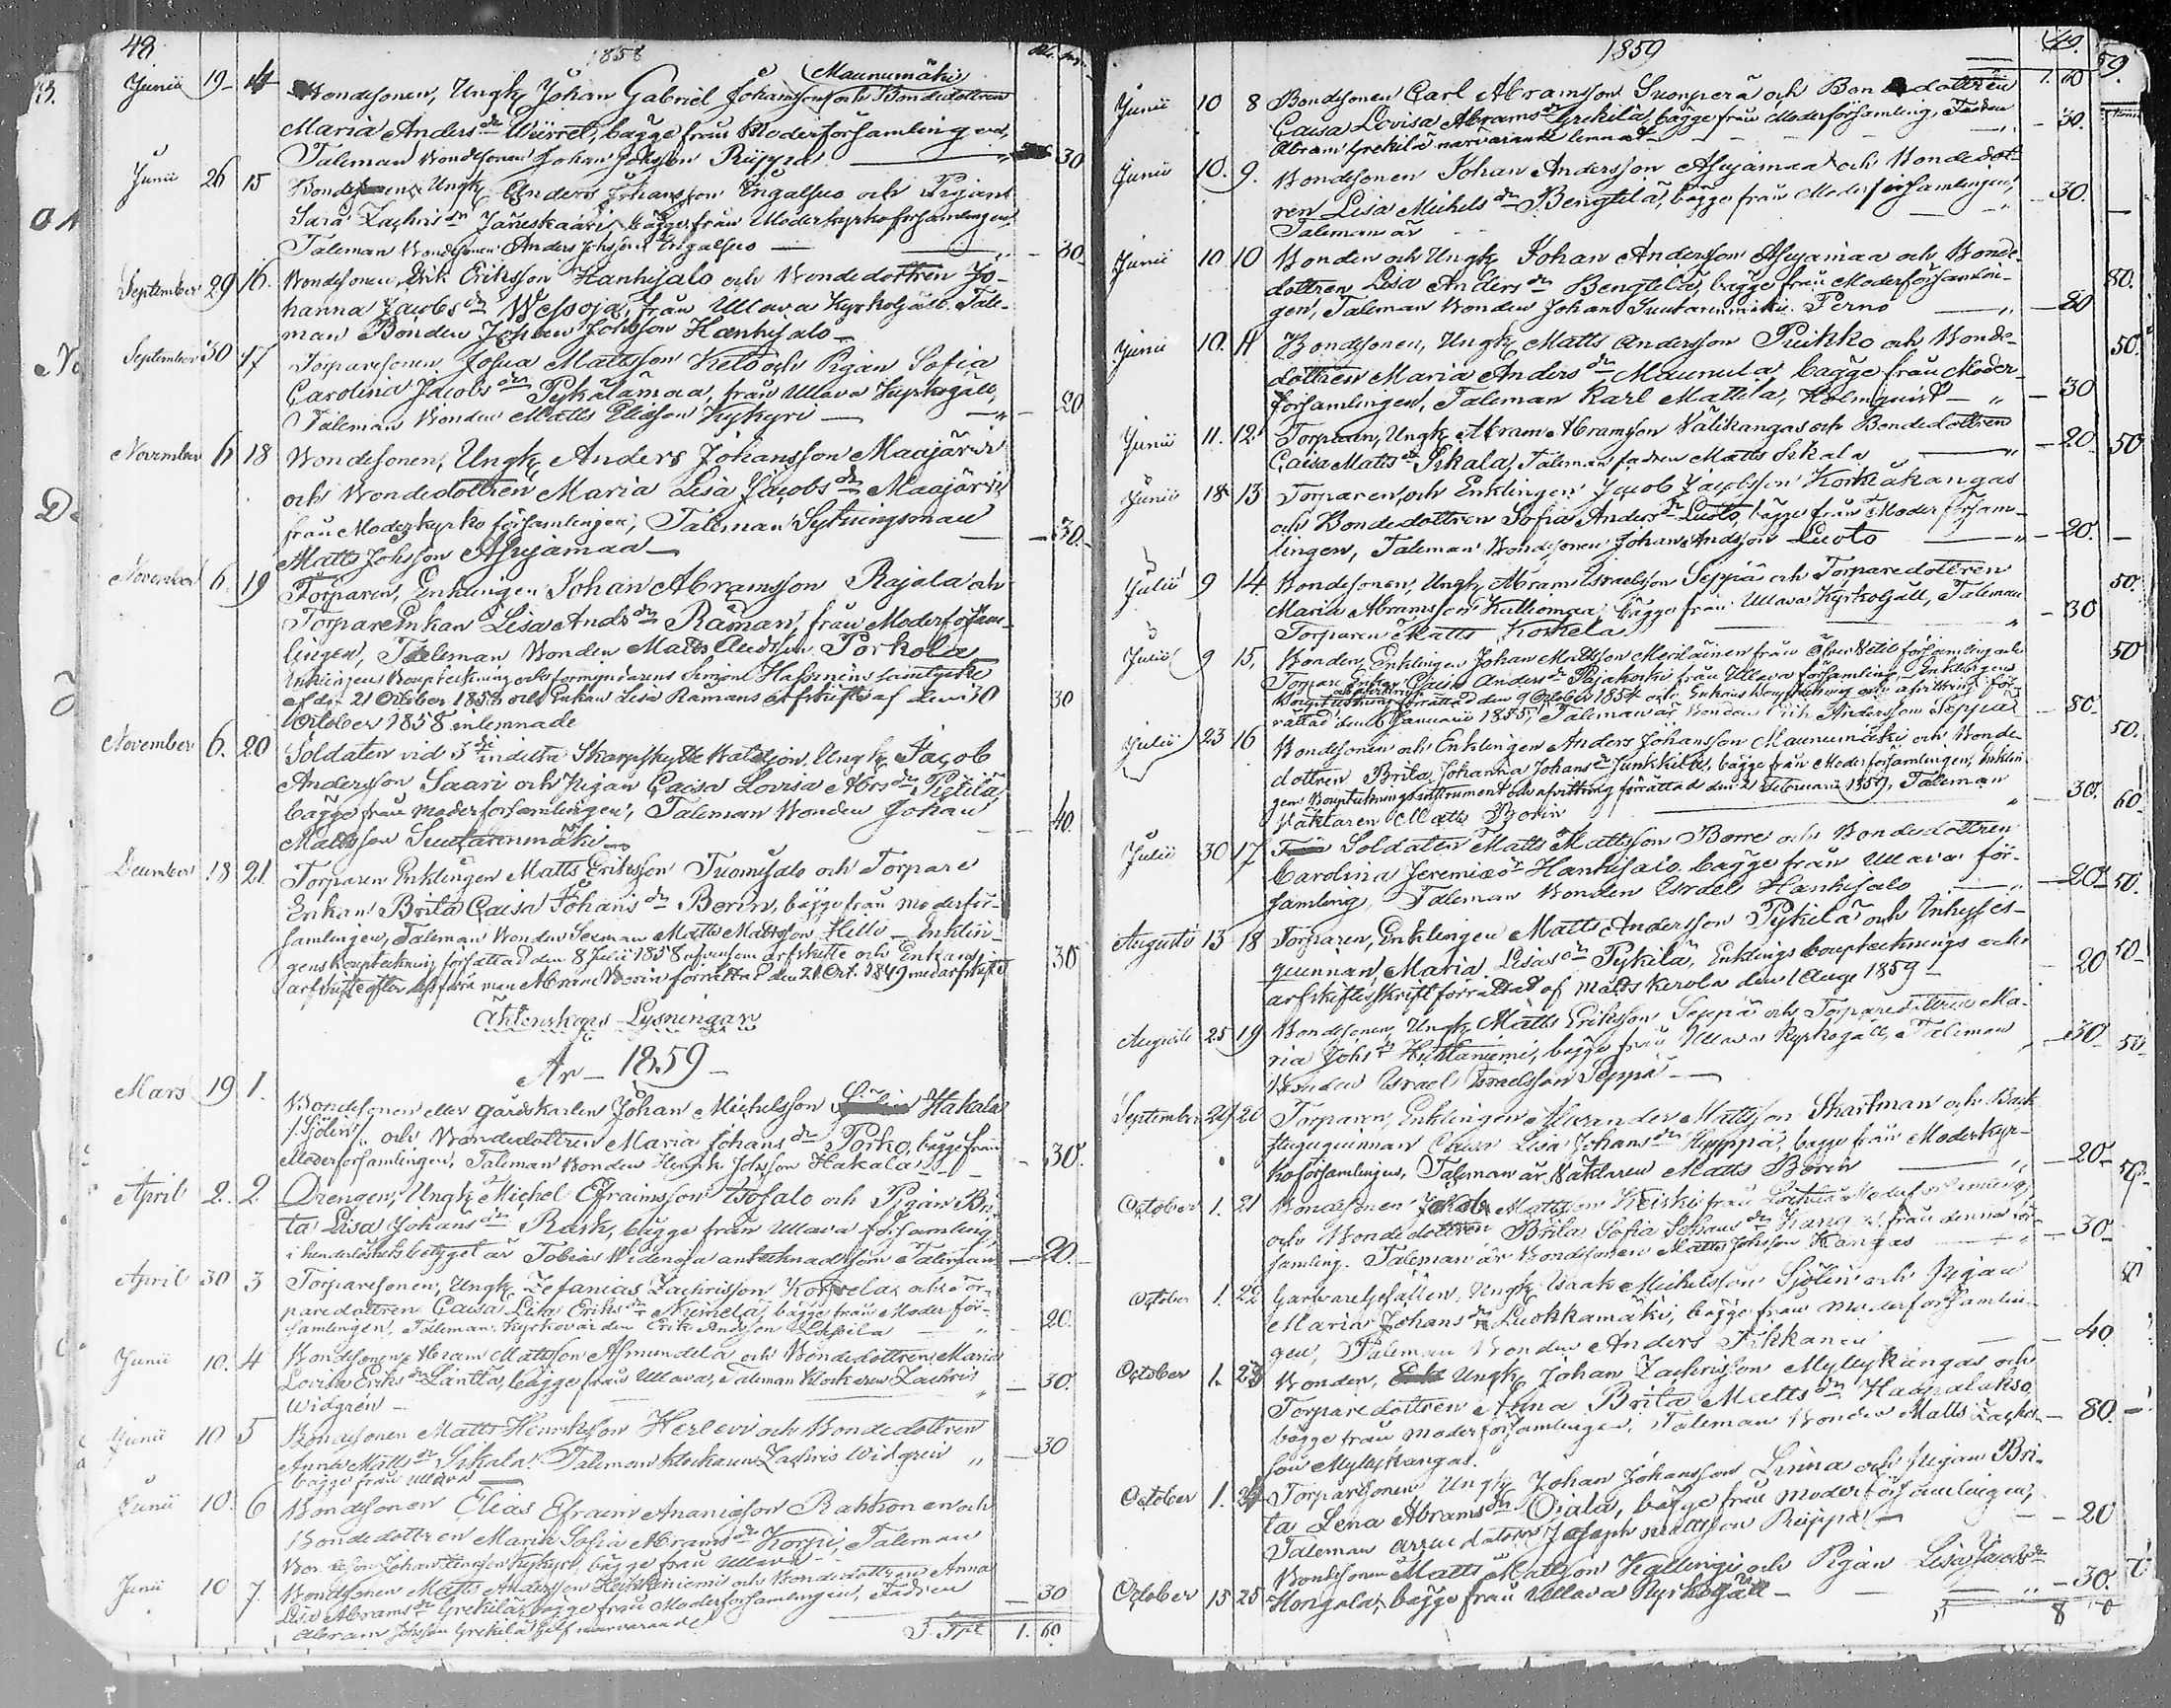 48
1858
Junii 19 14 Bondesonen, Ungk Johan Gabriel Johansson Maunumäki och Bondedottren
Maria Anders dr Wiirret, bägge från Moderförsamlingen,
Taleman Bondesonen Johan Johsson Riippa 30
Junii 26 15 Bondesonen Ungk Anders Johansson Ingalsuo och Pigan
Sara Zachris dr Jäneskaari, bägge från Moderkyrkoförsamlingen,
Taleman Bondesonen Anders Johsson Ingalsuo 30
September 29 16. Bondesonen, Erik Eriksson Hanhisalo och Bondedottren Jo-
hanna Jacobs dr Wessoja, från Ullava Kyrkogäll. Tale-
man Bonden Johan Johsson Hanhisalo
September 30 17 Torparesonen Josua Mattsson Kelo och Pigan Sofia
Carolina Jacobs dr Pykälämaa, från Ullava Kyrkogäll,
Taleman Bonden Matts Eliasson Kykyri 20
November 6 18 Bondesonen, Ungk Anders Johansson Maajärvi
och Bondedottren Maria Lisa Jacobs dr Maajärvi
från Moderkyrko församlingen, Taleman Sytningsman
Matts Johsson Ahujamaa 30
November 6. 19 Torparen, Enklingen Johan Abramsson Rajala och
Torpare Enkan Lisa Ands dr Råman, från Moderförsam-
lingen, Taleman Bonden Matts Andsson Porkola
Enklingens Bouptekning och formyndarens Simon Hassinens samtycke
af den 21 October 1858 och Enkan Lisa Råmans arfskifte af den 30
October 1858 inlemnade 30
November 6. 20 Soldaten vid 5te indelta Skarpskytte Bataljon, Ungk Jacob
Andersson Saari och Pigan Caisa Lovisa Abrs dr Pietilä,
bägge från Moderförsamlingen, Taleman Bonden Johan
Mattsson Suutarinmäki 40.
December 18 21. Torparen Enklingen Matts Eriksson Tuomisalo och Torpare
Enkan Brita Caisa Johans dr Borin, bägge från Moderför-
samlingen, Taleman Bonden Sexman Matts Mattsson Hilli Enklin-
gens bouptekning författad den 8 Julii 1858 äfvensom arfskifte och Enkans
arfskifte efter dess förra man Abram Borin förrättad den 21 Oct. 1849 med arfskifte 30
Ächtenskaps Lysningar
År 1859
Mars 19 1. Bondesonen eller gårdskarlen Johan Michelsson Hakala
/:Sjölin:/ och Bondedottren Maria Johans dr Porko, bägge från
Moderförsamlingen, Taleman Bonden Henrik Johsson Hakala 30.
April 2. 2 Drengen, Ungk Michel Efraimsson Isosalo och Pigan Bri-
ta Lisa Johans dr Rask, bägge från Ullava församling,
i hinderlöshets betyget är Tobias Videnoja antecknad som Taleman 20.
April 30 3 Torparesonen, Ungk Zefanias Zachrisson Korpela och Tor-
paredottren Caisa Lisa Eriks dr Niemelä, bägge från Moderför-
samlingen, Taleman Kyrkovärden Erik Andsson Lassila 20.
Junii 10. 4 Bondesonen Abram Mattsson Asmundela och Bondedottren Maria
Lovisa Eriks dr Läntta, bägge från Ullava, Taleman Klockaren Zachris
Widgrén 30.
Junii 10 5 Bondesonen Matts Henriksson Herlevi och Bondedottren
Anna Matts dr Sikala. Taleman klockaren Zachris Widgrén
bägge från Ullava 30
Junii 10. 6 Bondesonen Elias Efraim Ananiasson Rahkonen och
Bondedottren Maria Sofia Abrams dr Korpi, Taleman
Bondeson Johan Kykyri, bägge från Ullava
Junii 10 7. Bondesonen Matts Andersson Heikkiniemi och Bondedottren Anna
Lisa Abrams dr Grekilä, bägge från Moderförsamlingen, Fadren
Abram Johsson Grekilä sjelf närvarande 30
1. 60
1859
49.
1. 60
Junii 10 8 Bondesonen Carl Abramsson Suonperä och Bondedottren
Caisa Lovisa Abrams dr Grekilä, bägge från Moderförsamling, Fadren
Abram Grekilä närvarande lemnat 30.
Junii 10. 9. Bondesonen Johan Andersson Ahujamaa och Bondedott-
ren Lisa Michels dr Bengtela, bägge från Moderförsamlingen,
Taleman är 30.
Junii 10 10 Bonden och Ungk Johan Andersson Ahujamaa och Bonde-
dottren Lisa Anders dr Bengtelä, bägge från Moderförsamlin-
gen, Taleman Bonden Johan Suutarinmäki Perno 80
Junii 10. 11 Bondesonen, Ungk Matts Andersson Puikko och Bonde-
dottren Maria Anders dr Maunula bägge från Moder-
församlingen, Taleman Karl Mattila, Holmqvist 30
Junii 11. 12. Torparen, Ungk Abram Abramsson Välikangas och Bondedottren
Caisa Matts dr Sikala, Taleman fadren Matts Sikala 20
Junii 18 13 Torparen och Enklingen Jacob Jacobsson Korkiakangas
och Bondedottren Sofia Anders dr Luoto, bägge från Moderförsam-
lingen, Taleman Bondesonen Johan Andsson Luoto 20.
Julii 9 14 Bondesonen, Ungk Abram Israelsson Seppä och Torparedottren
Maria Abramsson Kulliomaa, bägge från Ullava Kyrkogäll, Taleman
Torparen Matts Korkela 30
Julii 9 15, Bonden, Enklingen Johan Mattsson Meriläinen från Öfver Vetil församling och
Torpare Enkan Caisa Anders dr Pajakoski från Ullava församling, Enklingens
Bouptekning och afvittring förrättad den 9 October 1854 och Enkans bouptekning och afvittring för-
rättad den 6 Januarii 1855, Taleman är Bonden Erik Andersson Seppä 80.
Julii 23 16 Bondesonen och Enklingen Anders Johansson Maunumäki och Bonde-
dottren Brita Johanna Johans dr Junkkila, bägge från Moderförsamlingen, Enklin-
gens Bouptekningsinstrument och afvittring förrättad den 2 Februarii 1859, Taleman
Väktaren Matts Borin 30.
Julii 30 17 Soldaten Matts Mattsson Borre och Bondedottren
Carolina Jeremias dr Hanhisalo, bägge från Ullava för-
samling, Taleman Bonden Israel Hanhisalo 20
Augusti 13 18 Torparen, Enklingen Matts Andersson Pykilä och Inhyses-
quinnan Maria Lisas dr Pykilä, Enklings bouptecknings och
arfskiftesskrift förrättad af Matts Kerola den 1 Aug 1859 20
Augusti 25 19 Bondesonen, Ungk Matts Eriksson Seppä och Torparedottren Ma-
ria Johs dr Hietaniemi, bägge från Ullava Kyrkogäll, Taleman
Bonden Israel Israelsson Seppä 30
September 24 20 Torparen, Enklingen Alexander Mattsson Skartman och Back
stuguquinnan Lisa Johans dr Hyyppä, bägge från Moderkyr-
koförsamlingen, Taleman är Väktaren Matts Borin 20
October 1. 21 Bondesonen Mattsson Keiski från Lochteå Moderförsamling,
och Bondedottren Brita Sofia Johans dr Kangas från denna för-
samling. Taleman är Bondesonen Matts Johsson Kangas 30
October 1. 22 Garfvaregesällen, Ungk Isaak Michelsson Sjölin och Pigan
Maria Johans dr Luokkamäki, bägge från Moderförsamlin-
gen, Taleman Bonden Anders Tikkanen 40
October 1. 23 Bonden, Ungk Johan Zachrisson Myllykangas och
Torparedottren Anna Brita Matts dr Haapalakso,
bägge från Moderförsamlingen, Taleman Bonden Matts Zachris-
son Myllykangas. 80.
October 1. 24 Torparsonen Ungk Johan Johansson Linna och Pigan Bri-
ta Lena Abrams dr Ojala, bägge från Moderförsamlingen,
Taleman Arrendatorn Joseph Mattsson Riippa 20
October 15 25 Bondesonen Matts Mattsson Kallingi och Pigan Lisa Jacobs dr
Hongala, bägge från Ullava Kyrkogäll 30.
8